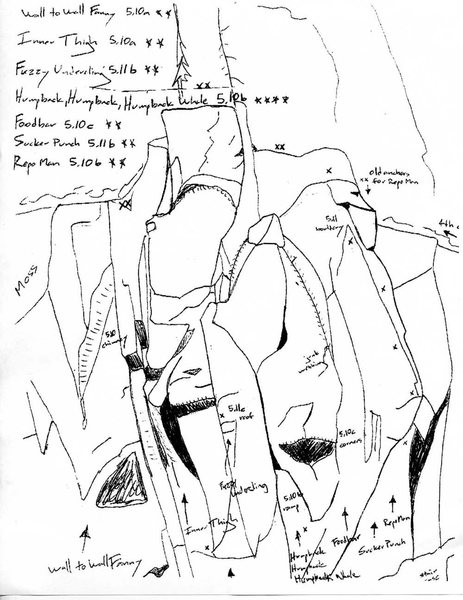 Wall to wall Fanny 5.10a **
Inner Thigh 5.10a **
Fuzzy Underling 5.11b **
Humpback, Humpback, Humpback Whale 5.10b ****
Foodbar 5.10c **
Sucker Punch 5.11b **
Repo Man 5.10b **
xx
xx
x
old anchors
xx for Repo Man
xx
5.11
x
4th c
Moss
x
5.10
chimney
x
x
x
5.11c roof
x
5.10c
corners
x
Fuzzy
Underling
5.10b
ramp
Inner Thigh
x
Wall to Wall Fanny
Humpback
Humpback
Humpback Whale
Foodbar
Sucker Punch
Repo Man